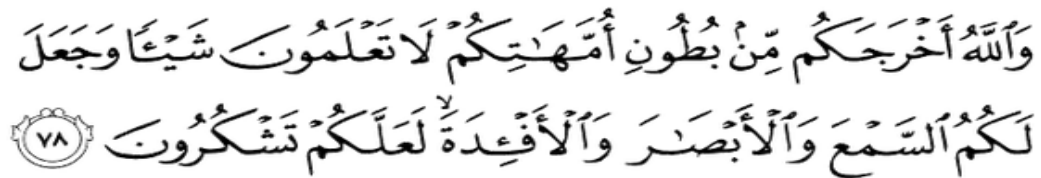 وَٱللَّهُ أَخْرَجَكُم مِّنۢ بُطُونِ أُمَّهَـٰتِكُمْ لَا تَعْلَمُونَ شَيْـًٔا وَجَعَلَ
لَكُمُ ٱلسَّمْعَ وَٱلْأَبْصَـٰرَ وَٱلْأَفْـِٔدَةَ ۙ لَعَلَّكُمْ تَشْكُرُونَ ٧٨